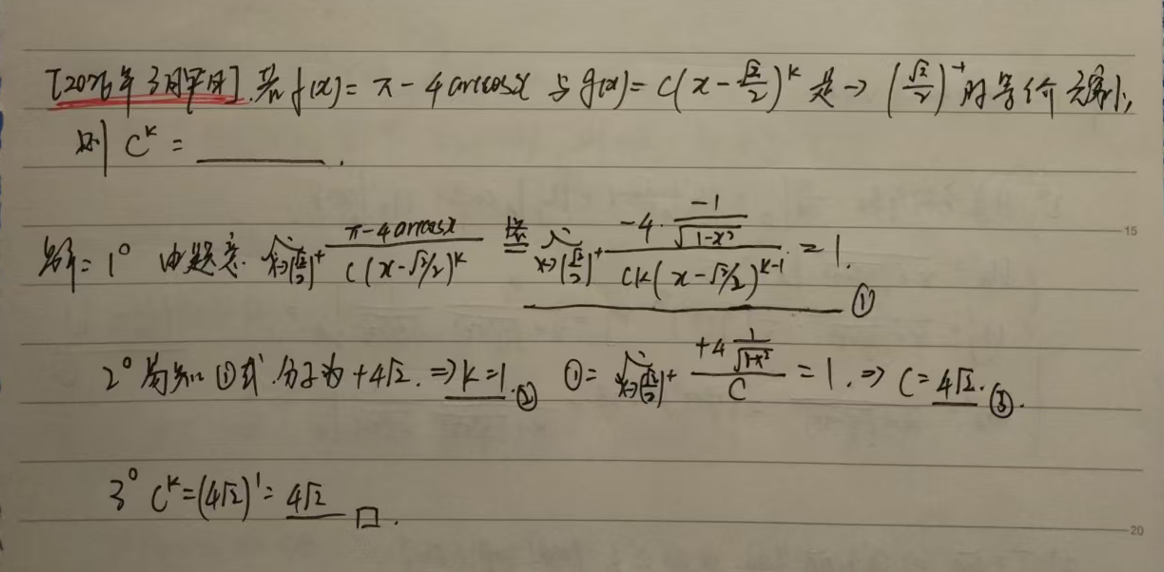 [2026年3月甲月]. 若f(x) = π - 4 arccosx 与 g(x) = C(x - √2/2)^k 是 → (√2/2)^+ 的等价无穷小,
则 C^k = ________.
解: 1° 由题意. lim x→(√2/2)^+ (π-4arccosx)/(C(x-√2/2)^k) 洛= lim x→(√2/2)^+ (-4·(-1)/√(1-x²))/(Ck(x-√2/2)^(k-1)) = 1. ①
2° 易知 ①式 分子为 +4√2. ⇒ k=1. ② ①= lim x→(√2/2)^+ (+4 1/√(1-x²))/C = 1. ⇒ C = 4√2. ③.
3° C^k = (4√2)^1 = 4√2 □.
15
20